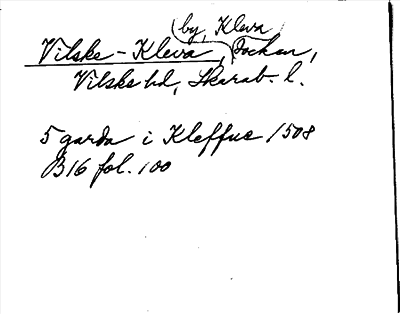 by, Kleva
Vilske-Kleva, socken,
Vilske hd, Skarab. l.
5 garda i Kleffue 1508
B16 fol. 100